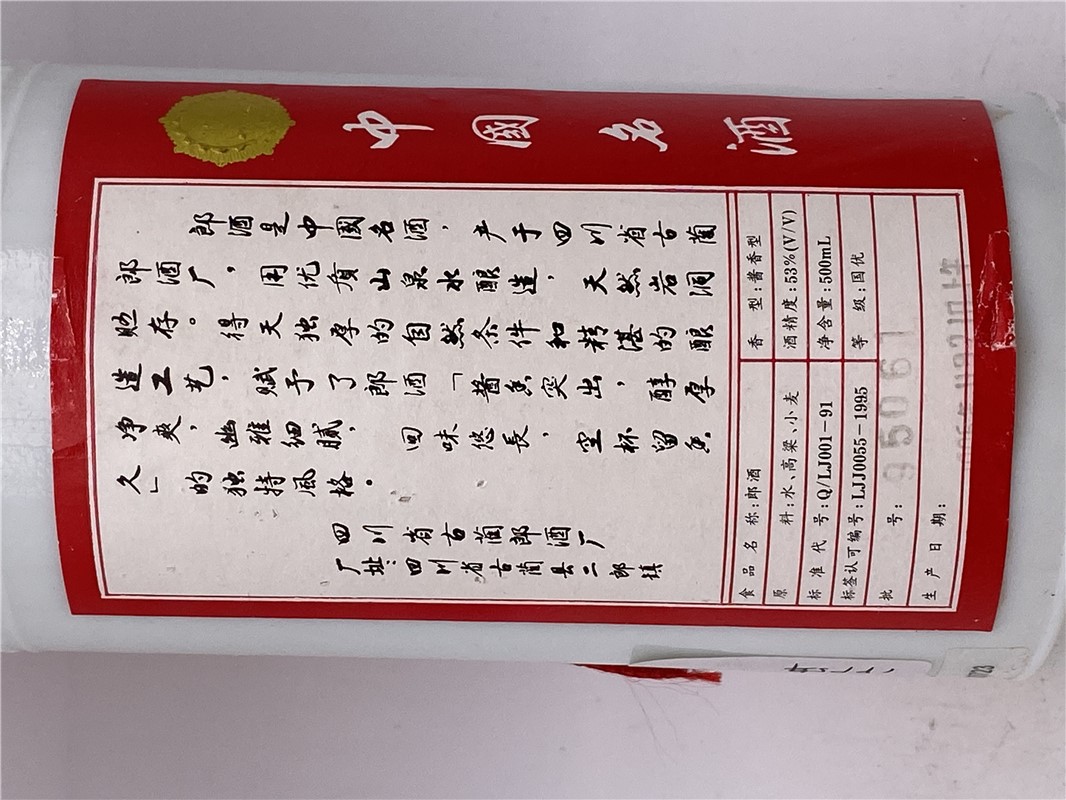 中國名酒
郎酒是中國名酒，产于四川省古蔺
郎酒厂，用优质山泉水酿造，天然岩洞
贮存。得天独厚的自然条件和精湛的酿
造工艺，赋予了郎酒「酱香突出，醇厚
净爽，幽雅细腻，回味悠長，空杯留香
久」的独特风格。
四川省古蔺郎酒厂
厂址：四川省古蔺县二郎镇
食品名称:郎酒 香型:酱香型
原料:水、高粱、小麦 酒精度:53%(V/V)
标准代号:Q/LJ001-91 净含量:500mL
标签认可编号:LJJ0055-1995 等级:国优
批号:
生产日期: